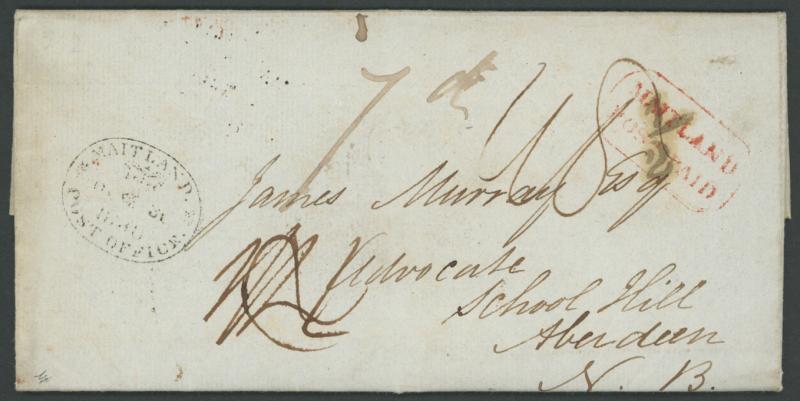 MAITLAND.
POST OFFICE.
7d
MAITLAND
PAID
James Murray Esq
Advocate
School Hill
Aberdeen
N. B.